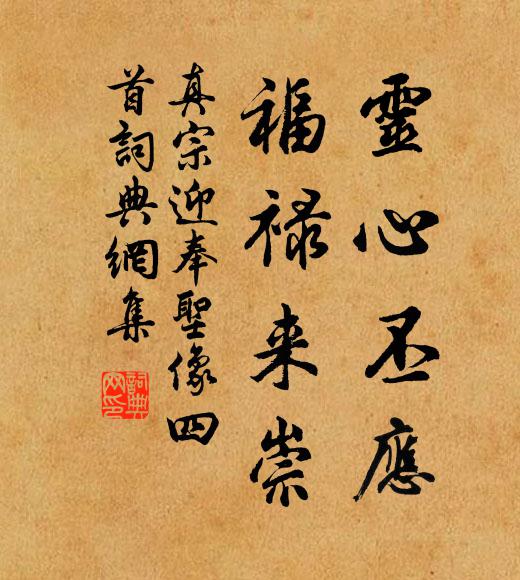 靈心丕應
福禄来崇
真宗迎奉聖像四
首詞典網集
詞典
网印